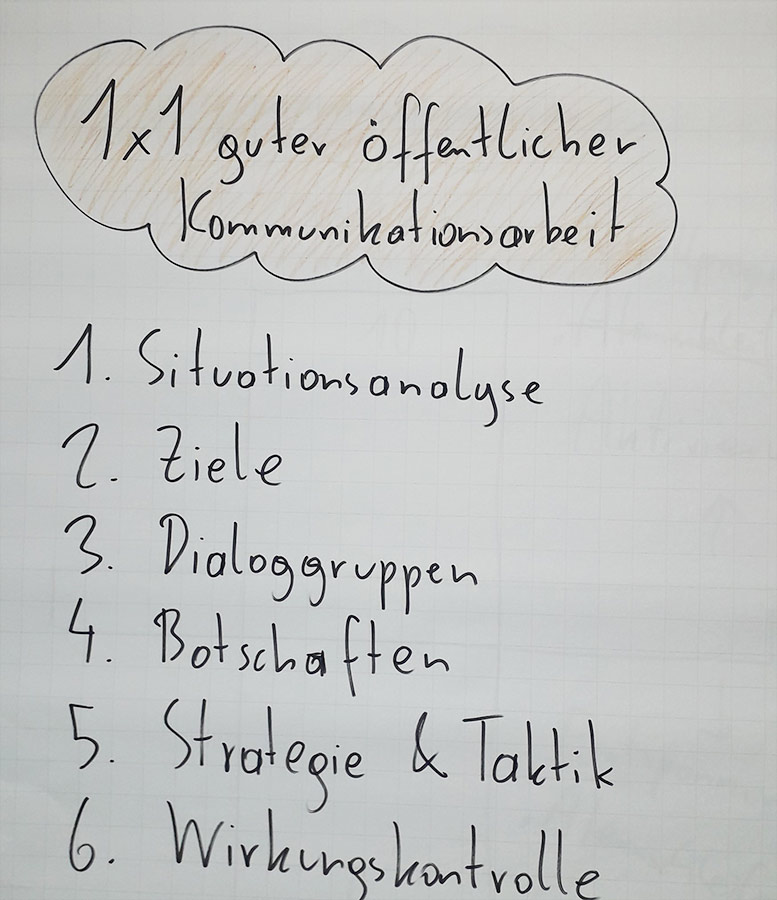 1x1 guter öffentlicher
Kommunikationsarbeit
1. Situationsanalyse
2. Ziele
3. Dialoggruppen
4. Botschaften
5. Strategie & Taktik
6. Wirkungskontrolle